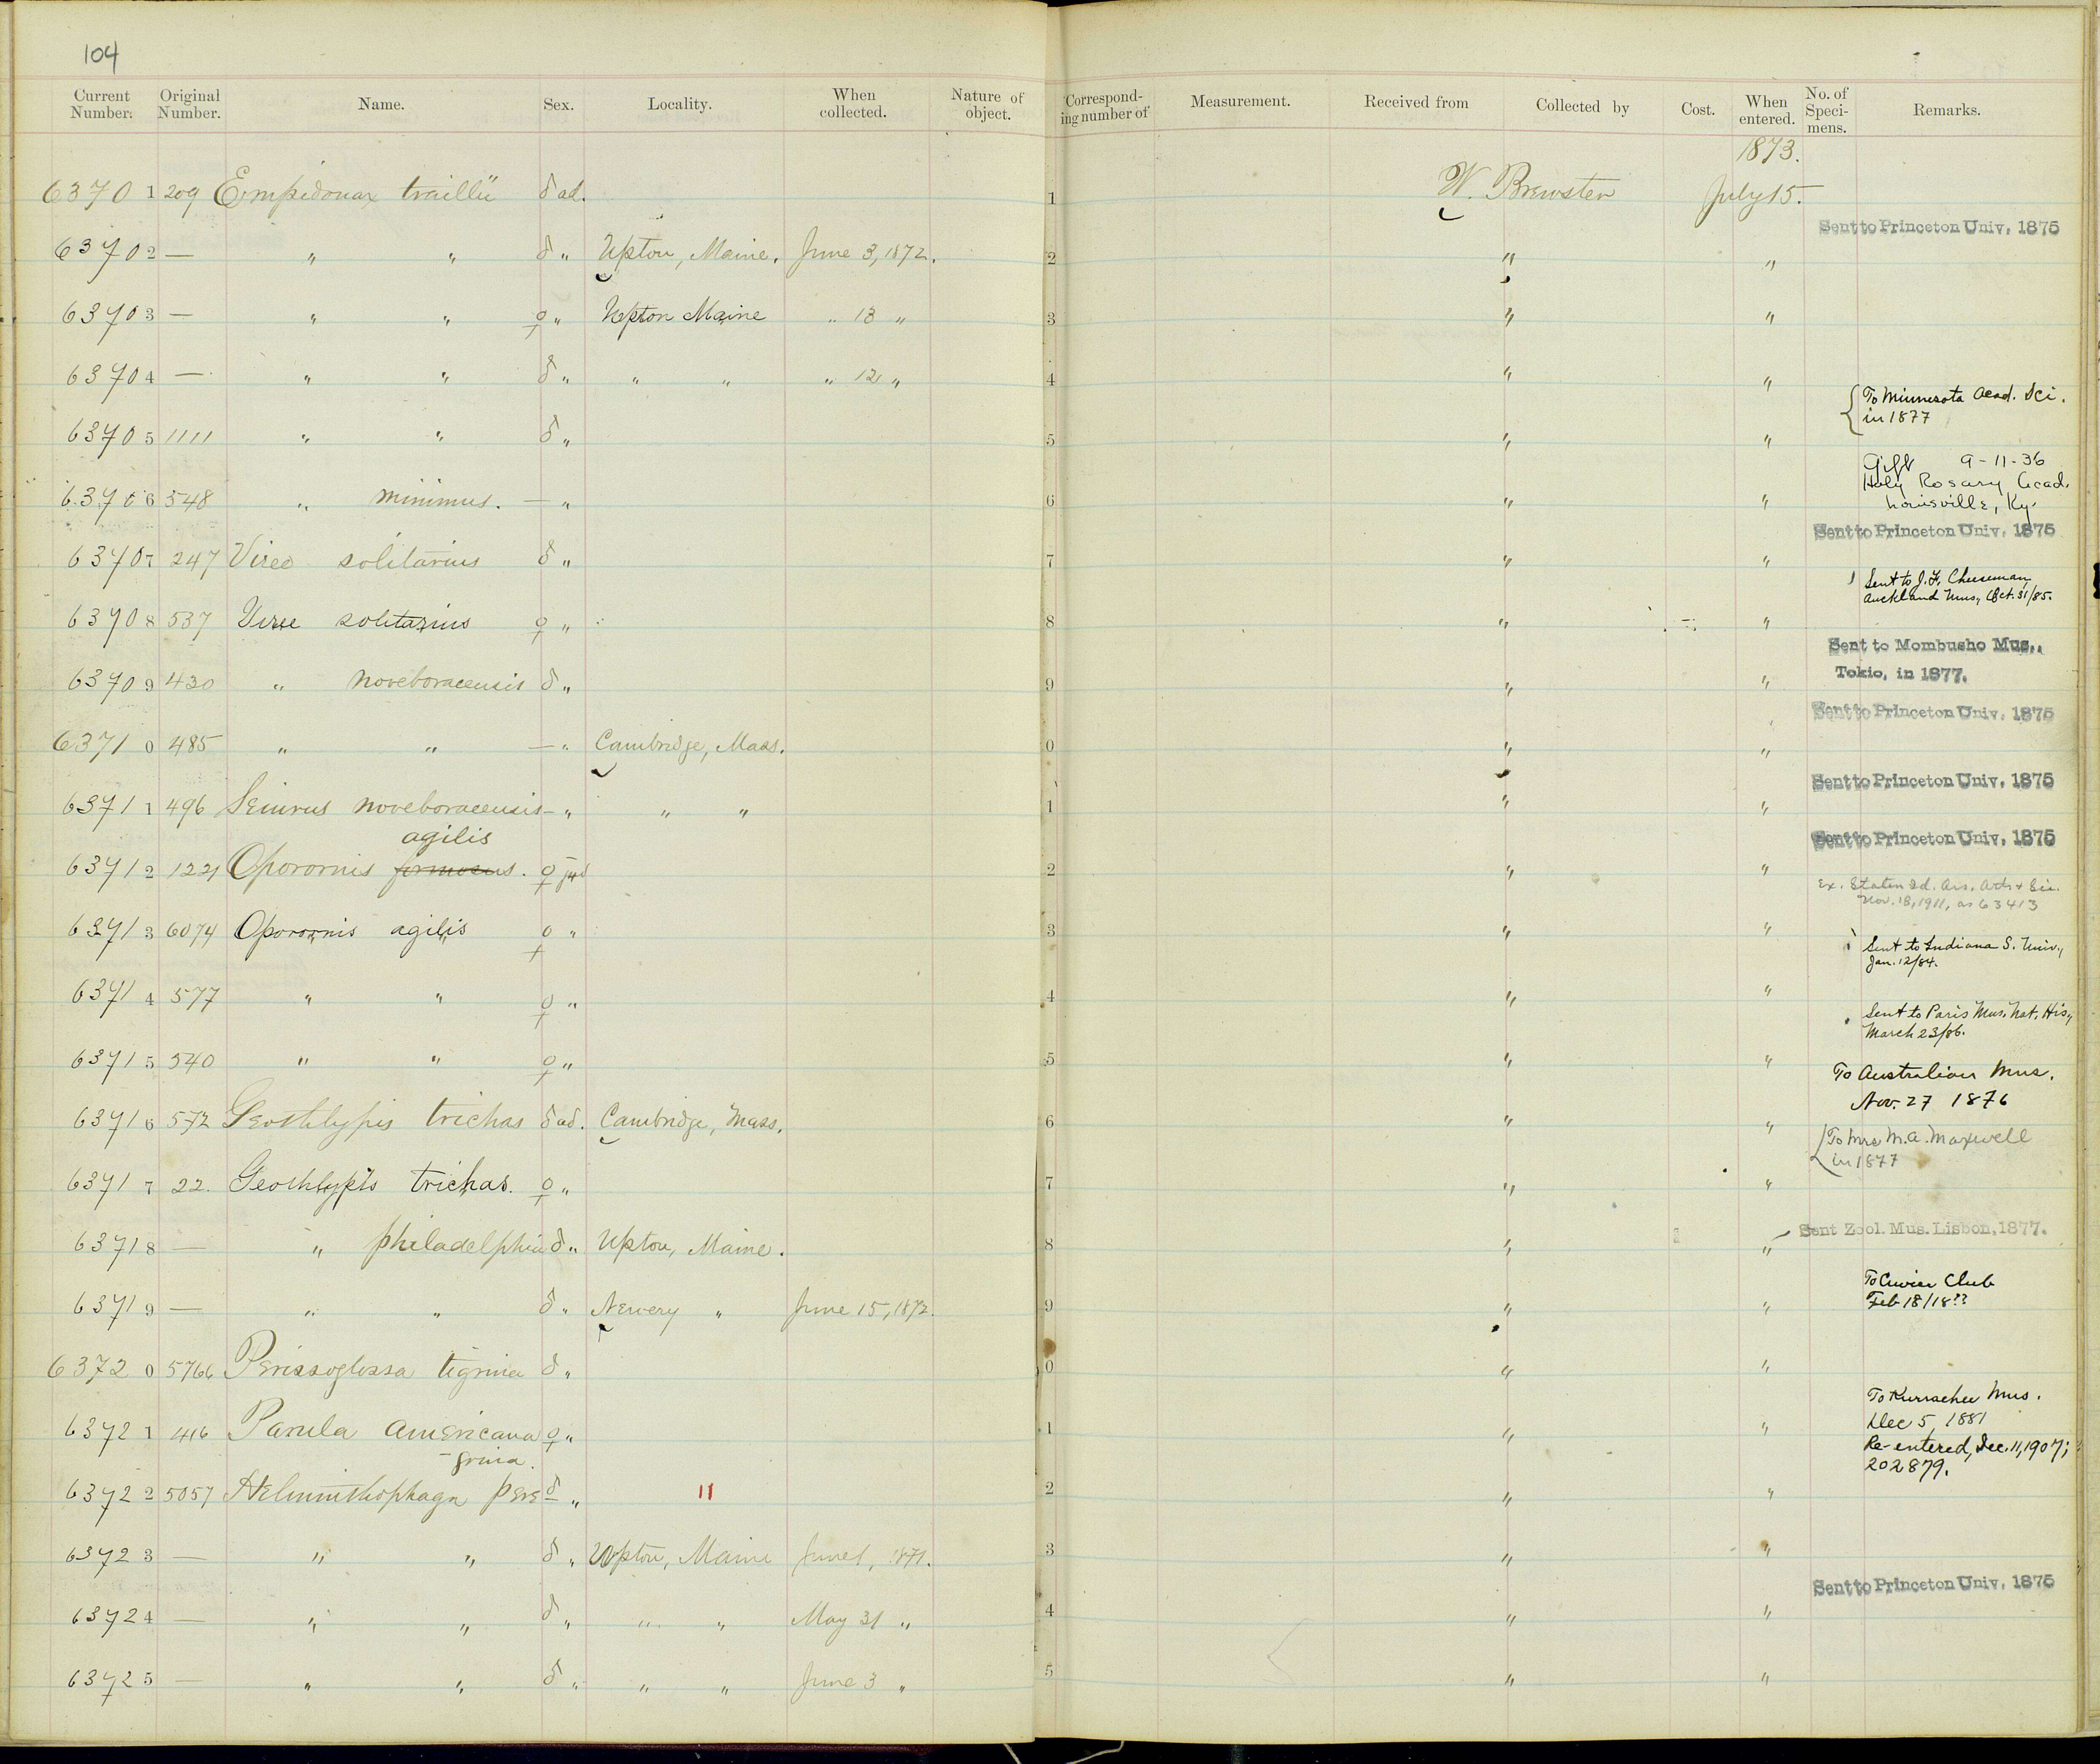 104
Current Number. Original Number. Name. Sex. Locality. When collected. Nature of object. Corresponding number of Measurement. Received from Collected by Cost. When entered. No. of Specimens. Remarks.
1873.
63701 209 Empidonax traillii ♂ ad. 1 W. Brewster July 15.
Sent to Princeton Univ. 1875
63702 — " " ♂ " Upton, Maine. June 3, 1872. 2 " "
63703 — " " ♀ " Upton Maine " 13 " 3 " "
63704 — " " ♂ " " " " 12 " 4 " "
To Minnesota Acad. Sci.
in 1877
63705 1111 " " ♂ " 5 " "
Gift 9-11-36
Holy Rosary Acad.
Louisville, Ky.
63706 548 " minimus. — " 6 " "
Sent to Princeton Univ. 1875
63707 247 Vireo solitarius ♂ " 7 " "
Sent to J. F. Cheeseman,
Auckland Mus., Oct. 31/85.
63708 537 Vireo solitarius ♀ " 8 " "
Sent to Mombusho Mus.,
Tokio, in 1877.
63709 430 " noveboracensis ♂ " 9 " "
Sent to Princeton Univ. 1875
63710 485 " " — " Cambridge, Mass. 0 " "
Sent to Princeton Univ. 1875
63711 496 Seiurus noveboracensis — " " " 1 " "
agilis
Sent to Princeton Univ. 1875
63712 1221 Oporornis formosus. ♀ 2 " "
Ex. Staten Id. Ass. Arts & Sci.
Nov. 18, 1911, as 63413
63713 6074 Oporornis agilis ♀ " 3 " "
Sent to Indiana S. Univ.,
Jan. 12/84.
63714 577 " " ♀ " 4 " "
Sent to Paris Mus. Nat. His.,
March 23/86.
63715 540 " " ♀ " 5 " "
To Australian Mus.
Nov. 27 1876
63716 572 Geothlypis trichas ♂ ad. Cambridge, Mass. 6 " "
To Mrs M. A. Maxwell
in 1877
63717 22. Geothlypis trichas. ♀ " 7 " "
63718 — " philadelphia ♂ " Upton, Maine. 8 " "
Sent Zool. Mus. Lisbon, 1877.
63719 — " " ♂ " Newery " June 15, 1872. 9 " "
To Cuvier Club
Feb 18/18??
63720 5766 Perissoglossa tigrina ♂ " 0 " "
To Kurrachee Mus.
Dec 5, 1881
63721 416 Parula americana ♀ " 1 " "
Re-entered, Dec. 11, 1907;
202879.
-grina.
63722 5057 Helminthophaga pere ♂ " 11 2 " "
63723 — " " ♂ " Upton, Maine June 1, 1871. 3 " "
Sent to Princeton Univ. 1875
63724 — " " ♂ " " " May 31 " 4 " "
63725 — " " ♂ " " " June 3 " 5 " "